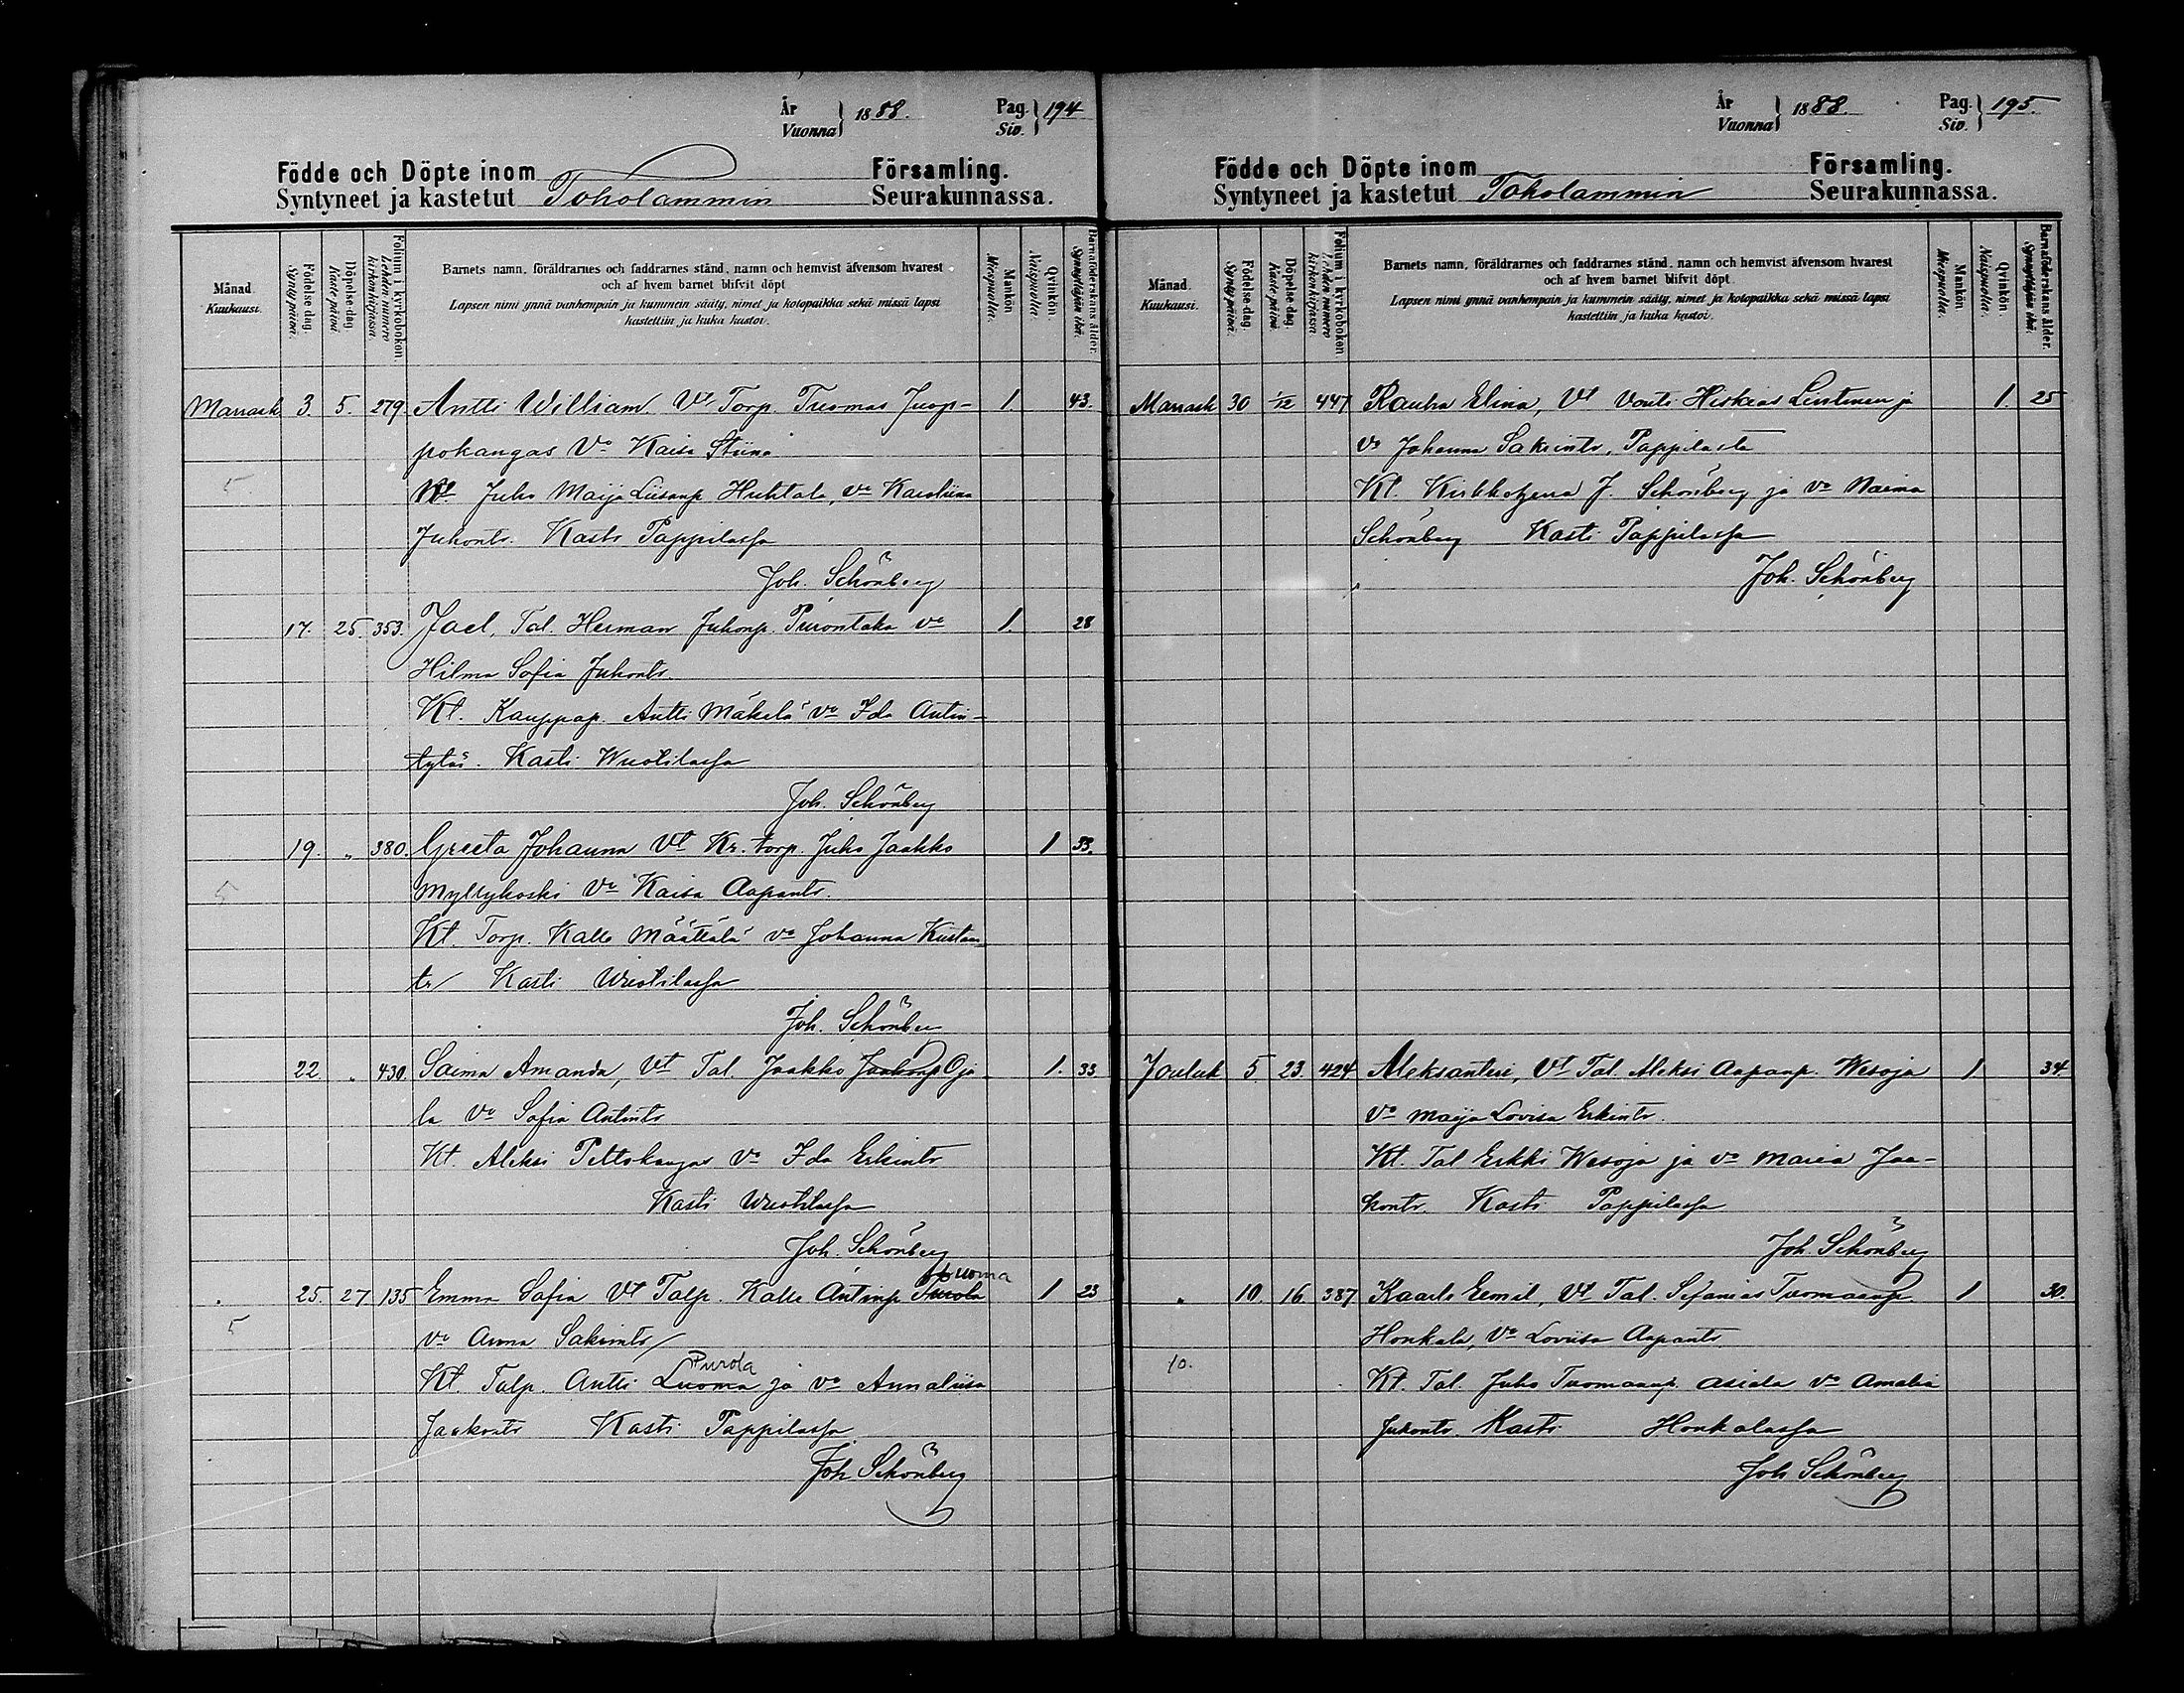 År
Vuonna } 1888. Pag. Siv. } 194
Födde och Döpte inom Församling.
Syntyneet ja kastetut Toholammin Seurakunnassa.
Månad. Kuukausi.
Födelse-dag. Syntypäivä.
Döpelse-dag. Kastepäivä.
Folium i kyrkoboken. Lehden numero kirkonkirjassa
Barnets namn, föräldrarnes och faddrarnes stånd, namn och hemvist äfvensom hvarest
och af hvem barnet blifvit döpt
Lapsen nimi ynnä vanhempain ja kummein sääty, nimet ja kotopaikka sekä missä lapsi
kastettiin ja kuka kastoi.
Mankön. Miespuolia.
Qvinkön. Naispuolia.
Barnaföderskans ålder. Synnyttäjän ikä.
Marrask 3. 5. 279. Antti William. Vt Torp. Tuomas Juop- 1. 43.
pokangas Vo Kaisa Stiina
5. Juho Maija Liisanp Huhtala, vo Karoliina
Juhontr. Kasti Pappilassa
Joh. Schönberg
17. 25. 353. Jael, Tal. Herman Juhonp. Purontaka vo 1. 28
Hilma Sofia Juhontr.
Kt. Kauppap. Antti Mäkelä vo Ida Antin-
tytär. Kasti Wuotilassa
Joh. Schönberg
19. " 380. Greeta Johanna Vt Kr. torp. Juho Jaakko 1 33.
5 Myllykoski Vo Kaisa Aapantr.
Kt. Torp. Kalle Määttälä vo Johanna Kustan-
tr Kasti Wuotilassa
Joh. Schönber
22. " 430. Saima Amanda, Vt Tal. Jaakko Jaakonp Oja- 1. 33
la Vo Sofia Antintr
Kt. Aleksi Peltokangas Vo Ida Erkintr
Kasti Wuotilassa
Joh. Schönberg
Luoma
25. 27 135 Emma Sofia Vt Talp. Kalle Antinp Purola 1 23
5 vo Anna Sakrintr
Purola
Kt. Talp. Antti Luoma ja vo Annaliisa
Jaakontr Kasti Pappilassa
Joh Schönberg
År
Vuonna } 1888. Pag. Siv. } 195.
Födde och Döpte inom Församling.
Syntyneet ja kastetut Toholammin Seurakunnassa.
Månad. Kuukausi.
Födelse-dag. Syntypäivä.
Döpelse-dag. Kastepäivä.
Folium i kyrkoboken Lehden numero kirkonkirjassa
Barnets namn, föräldrarnes och faddrarnes stånd, namn och hemvist äfvensom hvarest
och af hvem barnet blifvit döpt.
Lapsen nimi ynnä vanhempain ja kummein sääty, nimet ja kotopaikka sekä missä lapsi
kastettiin ja kuka kastoi.
Mankön. Miespuolia.
Qvinkön. Naispuolia.
Barnaföderskans ålder. Synnyttäjän ikä.
Marrask 30 1/12 447 Rauha Elina, Vt Vouti Hiskias Lintinen ja 1. 25
Vo Johanna Sakrintr, Pappilasta
Kt. Kirkkoherra J. Schönberg ja vo Naima
Schönberg Kasti Pappilassa
Joh. Schönberg
Jouluk 5. 23. 424 Aleksanteri, Vt Tal. Aleksi Aapanp. Wesoja 1 34.
Vo Maija Lovisa Erkintr.
Kt. Tal Erkki Wesoja ja vo Maria Jaa-
kontr. Kasti Pappilassa
Joh. Schönberg
" 10. 16 387 Kaarlo Eemil, Vt Tal. Sefanias Tuomaanp. 1 30.
Honkala, Vo Loviisa Aapantr.
10. Kt. Tal. Juho Tuomaanp. Asiala vo Amalia
Juhontr. Kasti Honkalassa
Joh Schönberg